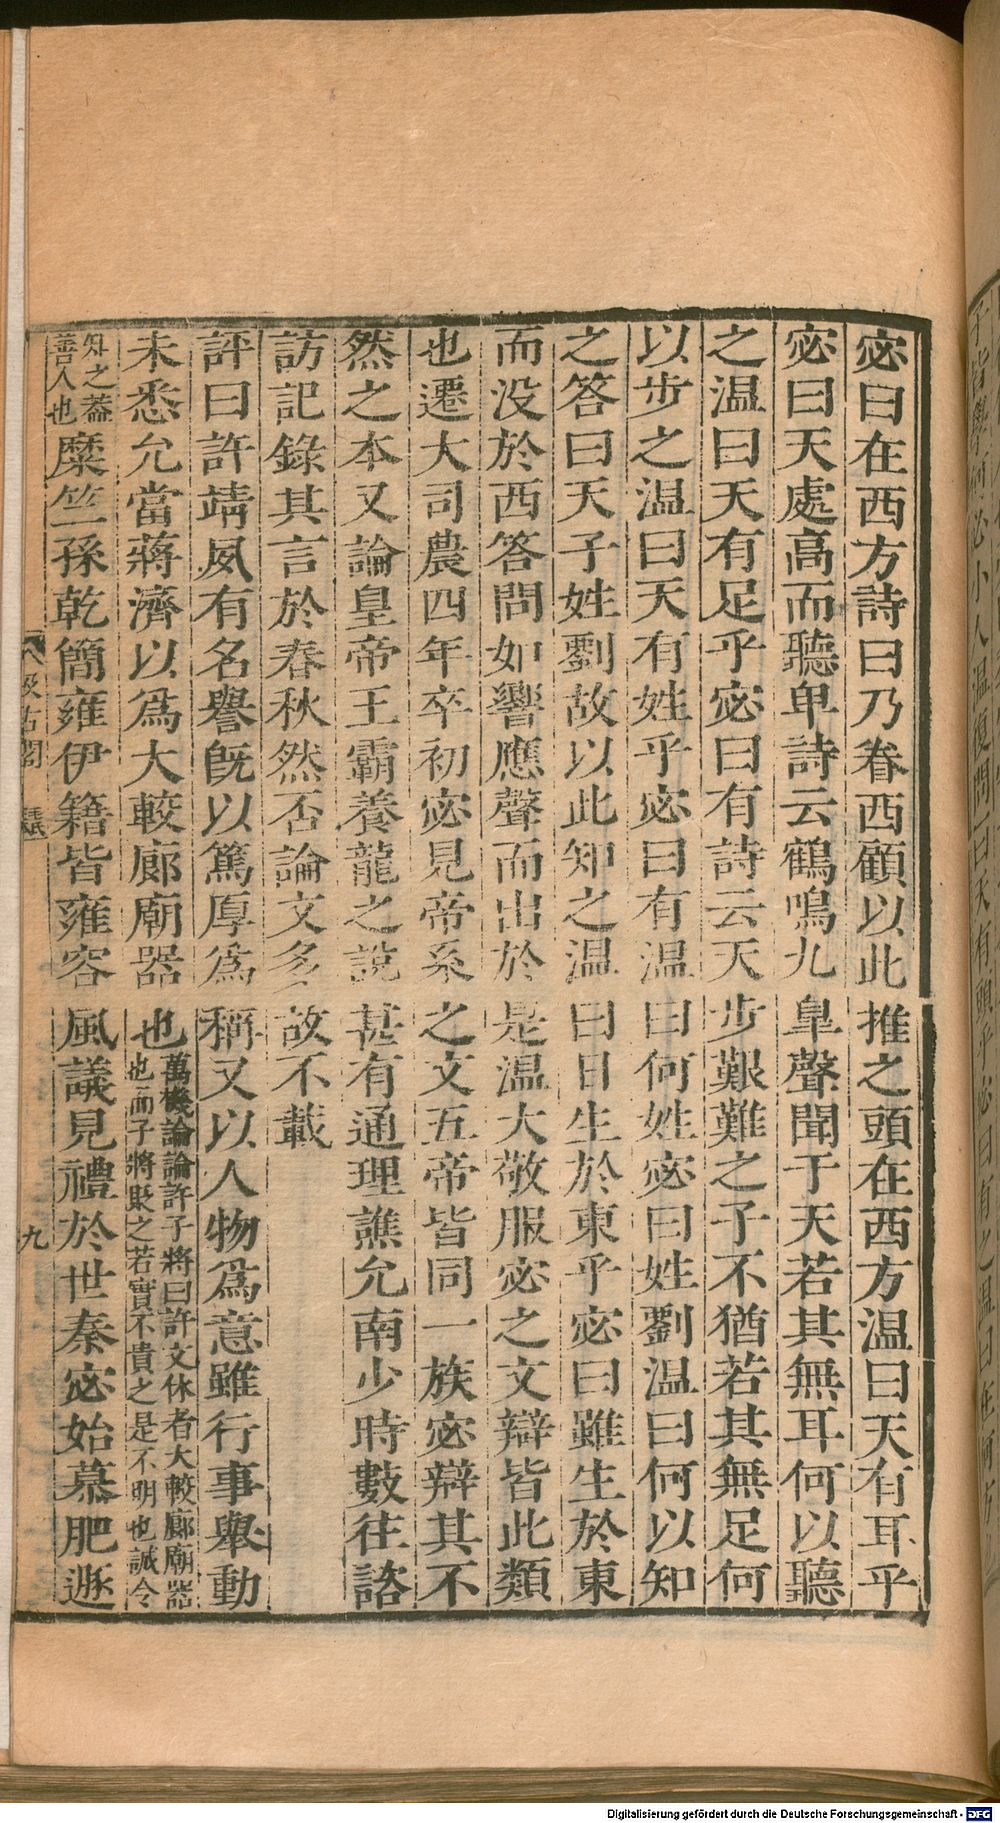 宓曰在西方詩曰乃眷西顧以此推之頭在西方温曰天有耳乎
宓曰天處高而聽卑詩云鶴鳴九臯聲聞于天若其無耳何以聽
之温曰天有足乎宓曰有詩云天步艱難之子不猶若其無足何
以步之温曰天有姓乎宓曰有温曰何姓宓曰姓劉温曰何以知
之答曰天子姓劉故以此知之温曰日生於東乎宓曰雖生於東
而没於西答問如響應聲而出於是温大敬服宓之文辯皆此類
也遷大司農四年卒初宓見帝系之文五帝皆同一族宓辯其不
然之本又論皇帝王霸養龍之說甚有通理譙允南少時數往諮
訪記錄其言於春秋然否論文多故不載
評曰許靖夙有名譽旣以篤厚爲稱又以人物爲意雖行事舉動
未悉允當蔣濟以爲大較廊廟器也萬機論論許子將曰許文休者大較廊廟器
也而子將貶之若實不貴之是不明也誠令
知之葢
善人也糜竺孫乾簡雍伊籍皆雍容風議見禮於世秦宓始慕肥遯
汲古閣
九
Digitalisierung gefördert durch die Deutsche Forschungsgemeinschaft - DFG